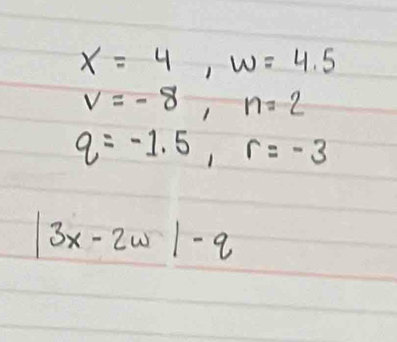 x = 4 , w = 4.5
v = -8 , n = 2
q = -1.5 , r = -3
|3x - 2w| - q